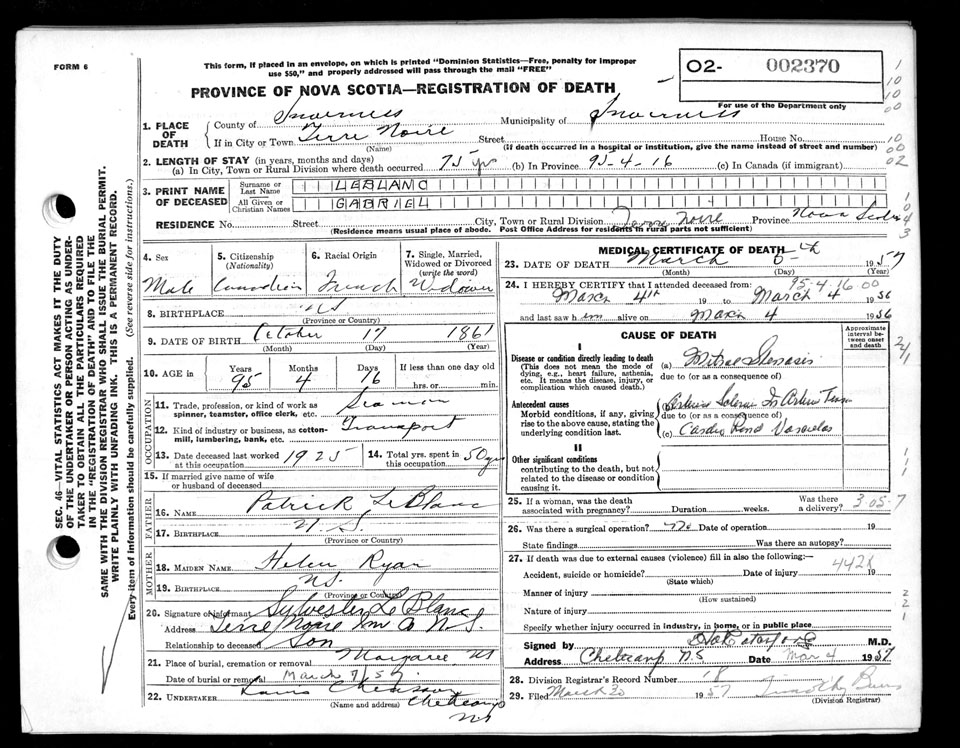 FORM 6
This form, if placed in an envelope, on which is printed "Dominion Statistics—Free, penalty for improper
use $50," and properly addressed will pass through the mail "FREE"
PROVINCE OF NOVA SCOTIA—REGISTRATION OF DEATH
O2- 002370
For use of the Department only
1. PLACE OF DEATH
County of Inverness Municipality of Inverness
If in City or Town Terre Noire Street House No.
(Name) (If death occurred in a hospital or institution, give the name instead of street and number)
2. LENGTH OF STAY (in years, months and days)
(a) In City, Town or Rural Division where death occurred 75 yrs (b) In Province 95-4-16 (c) In Canada (if immigrant)
3. PRINT NAME OF DECEASED
Surname or Last Name LEBLANC
All Given or Christian Names GABRIEL
RESIDENCE No. Street City, Town or Rural Division Terre Noire Province Nova Scotia
(Residence means usual place of abode. Post Office Address for residents in rural parts not sufficient)
4. Sex
Male
5. Citizenship (Nationality)
Canadian
6. Racial Origin
French
7. Single, Married, Widowed or Divorced (write the word)
Widower
8. BIRTHPLACE NS
(Province or Country)
9. DATE OF BIRTH October 17 1861
(Month) (Day) (Year)
10. AGE in Years Months Days If less than one day old
95 4 16 hrs. or min.
OCCUPATION
11. Trade, profession, or kind of work as spinner, teamster, office clerk, etc. Seaman
12. Kind of industry or business, as cotton-mill, lumbering, bank, etc. Transport
13. Date deceased last worked at this occupation 1925
14. Total yrs. spent in this occupation 50 yrs
15. If married give name of wife or husband of deceased
FATHER
16. NAME Patrick LeBlanc
17. BIRTHPLACE N S.
(Province or Country)
MOTHER
18. MAIDEN NAME Helen Ryan
19. BIRTHPLACE NS.
(Province or Country)
20. Signature of informant Sylvester LeBlanc
Address Terre Noire Inv Co N.S.
Relationship to deceased Son
21. Place of burial, cremation or removal Margaree NS
Date of burial or removal March 7/57
22. UNDERTAKER
(Name and address) Cheticamp
NS
MEDICAL CERTIFICATE OF DEATH
23. DATE OF DEATH March 5th 1957
(Month) (Day) (Year)
24. I HEREBY CERTIFY that I attended deceased from: 95-4-16-00
March 4th 19 to March 4 1956
and last saw h im alive on March 4 1956
CAUSE OF DEATH
Approximate interval between onset and death
I
Disease or condition directly leading to death
(This does not mean the mode of dying, e.g., heart failure, asthenia, etc. It means the disease, injury, or complication which caused death.)
(a) Mitral Stenosis
due to (or as a consequence of)
Antecedent causes
Morbid conditions, if any, giving rise to the above cause, stating the underlying condition last.
due to (or as a consequence of)
(c) Cardio Renal Vascular
II
Other significant conditions
contributing to the death, but not related to the disease or condition causing it.
25. If a woman, was the death associated with pregnancy? Duration weeks. Was there a delivery? 3-05-7
26. Was there a surgical operation? No Date of operation 19
State findings Was there an autopsy?
27. If death was due to external causes (violence) fill in also the following:—
442X
Accident, suicide or homicide? Date of injury 19
(State which)
Manner of injury
(How sustained)
Nature of injury
Specify whether injury occurred in industry, in home, or in public place
Signed by M.D.
Address Cheticamp N.S Date Mar 4 1957
28. Division Registrar's Record Number 18
29. Filed March 20 1957 Timothy
(Division Registrar)
SEC. 46—VITAL STATISTICS ACT MAKES IT THE DUTY
OF THE UNDERTAKER OR PERSON ACTING AS UNDER-
TAKER TO OBTAIN ALL THE PARTICULARS REQUIRED
IN THE "REGISTRATION OF DEATH" AND TO FILE THE
SAME WITH THE DIVISION REGISTRAR WHO SHALL ISSUE THE BURIAL PERMIT.
WRITE PLAINLY WITH UNFADING INK. THIS IS A PERMANENT RECORD.
Every item of information should be carefully supplied. (See reverse side for instructions.)